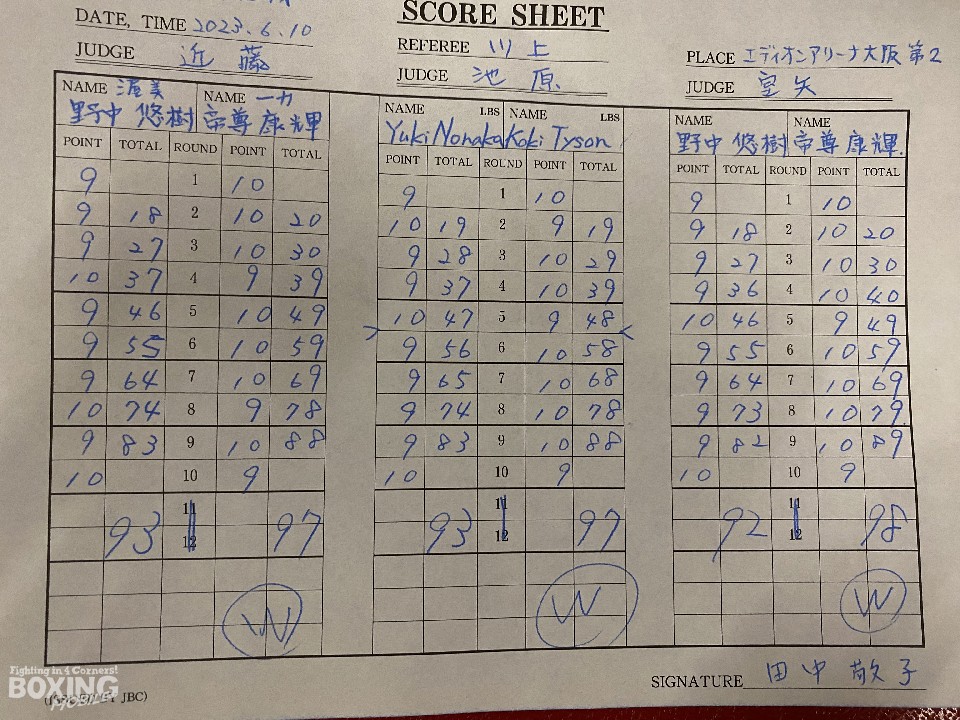 SCORE SHEET
DATE, TIME 2023.6.10
REFEREE 川上
PLACE エディオンアリーナ大阪 第2
JUDGE 近藤
JUDGE 池原
JUDGE 室矢
NAME 渥美 NAME 一力
野中 悠樹 帝尊 康輝
NAME LBS NAME LBS
Yuki Nonaka Koki Tyson
NAME NAME
野中 悠樹 帝尊 康輝
POINT TOTAL ROUND POINT TOTAL POINT TOTAL ROUND POINT TOTAL POINT TOTAL ROUND POINT TOTAL
9 1 10 9 1 10 9 1 10
9 18 2 10 20 10 19 2 9 19 9 18 2 10 20
9 27 3 10 30 9 28 3 10 29 9 27 3 10 30
10 37 4 9 39 9 37 4 10 39 9 36 4 10 40
9 46 5 10 49 10 47 5 9 48 10 46 5 9 49
9 55 6 10 59 9 56 6 10 58 9 55 6 10 59
9 64 7 10 69 9 65 7 10 68 9 64 7 10 69
10 74 8 9 78 9 74 8 10 78 9 73 8 10 79
9 83 9 10 88 9 83 9 10 88 9 82 9 10 89
10 10 9 10 10 9 10 10 9
11 11 11
93 97 93 97 92 98
12 12 12
W W W
SIGNATURE 田中 敬子
Fighting in 4 Corners!
BOXING
MOBILE
JBC)